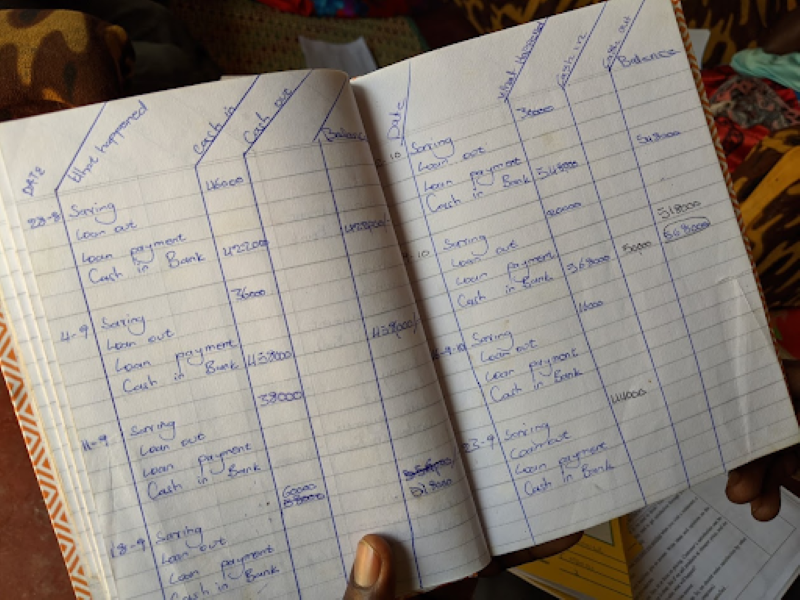 DATE What happened Cash in Cash out Balance
28-8 Saving 46000
Loan out
Loan payment
Cash in Bank 422000 422000/
4-9 Saving 36000
Loan out
Loan payment
Cash in Bank 458000 458000/
11-9 Saving 38000
Loan out
Loan payment
Cash in Bank
18-9 Saving 60000
Loan out
Loan payment 518000
Cash in Bank
Date What Happened Cash in Cash out Balance
10 Saving 30000
Loan out
Loan payment
Cash in Bank 548000 548000
10 Saving 20000
Loan out
Loan payment 518000
Cash in Bank 568000 50000 668000
Saving 16000
Loan out
Loan payment
Cash in Bank
23-9 Saving 44000
Loan out
Loan payment
Cash in Bank